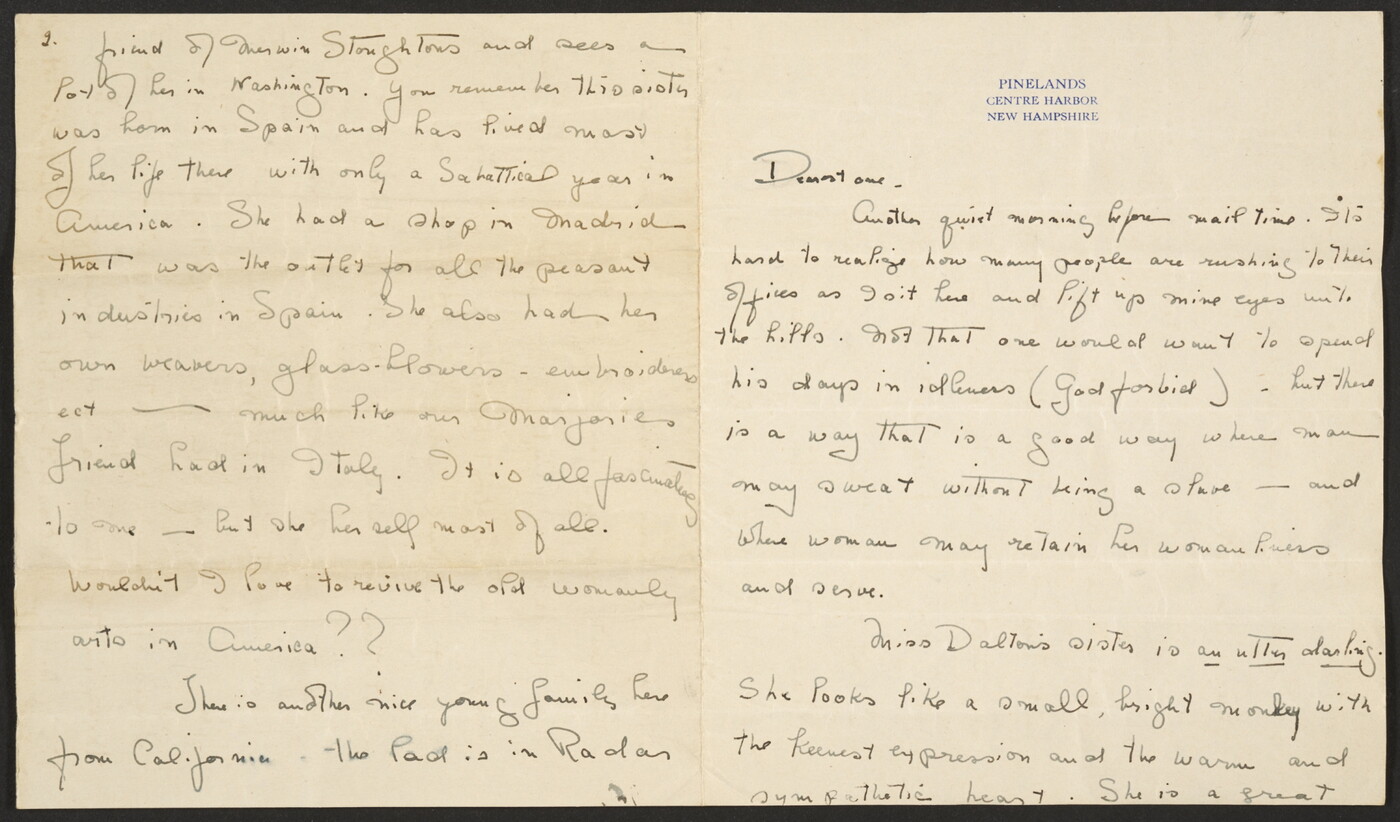 PINELANDS
CENTRE HARBOR
NEW HAMPSHIRE
Dearest one.
Another quiet morning before mail time. It's
hard to realize how many people are rushing to their
offices as I sit here and lift up mine eyes unto
the hills. Not that one would want to spend
his days in idleness (God forbid) - but there
is a way that is a good way where man
may sweat without being a slave — and
where woman may retain her womanliness
and serve.
Miss Dalton's sister is an utter darling.
She looks like a small, bright monkey with
the keenest expression and the warm and
sympathetic heart. She is a great
2.
friend of Merwin Stoughtons and sees a
lot of her in Washington. You remember this sister
was born in Spain and has lived most
of her life there with only a Sabattical year in
America. She had a shop in Madrid
that was the outlet for all the peasant
industries in Spain. She also had her
own weavers, glass-blowers - embroiderers
ect — much like our Marjories
friend had in Italy. It is all fascinating
to me — but she herself most of all.
Wouldn't I love to revive the old womanly
arts in America??
There is another nice young family here
from California - the lad is in Radar